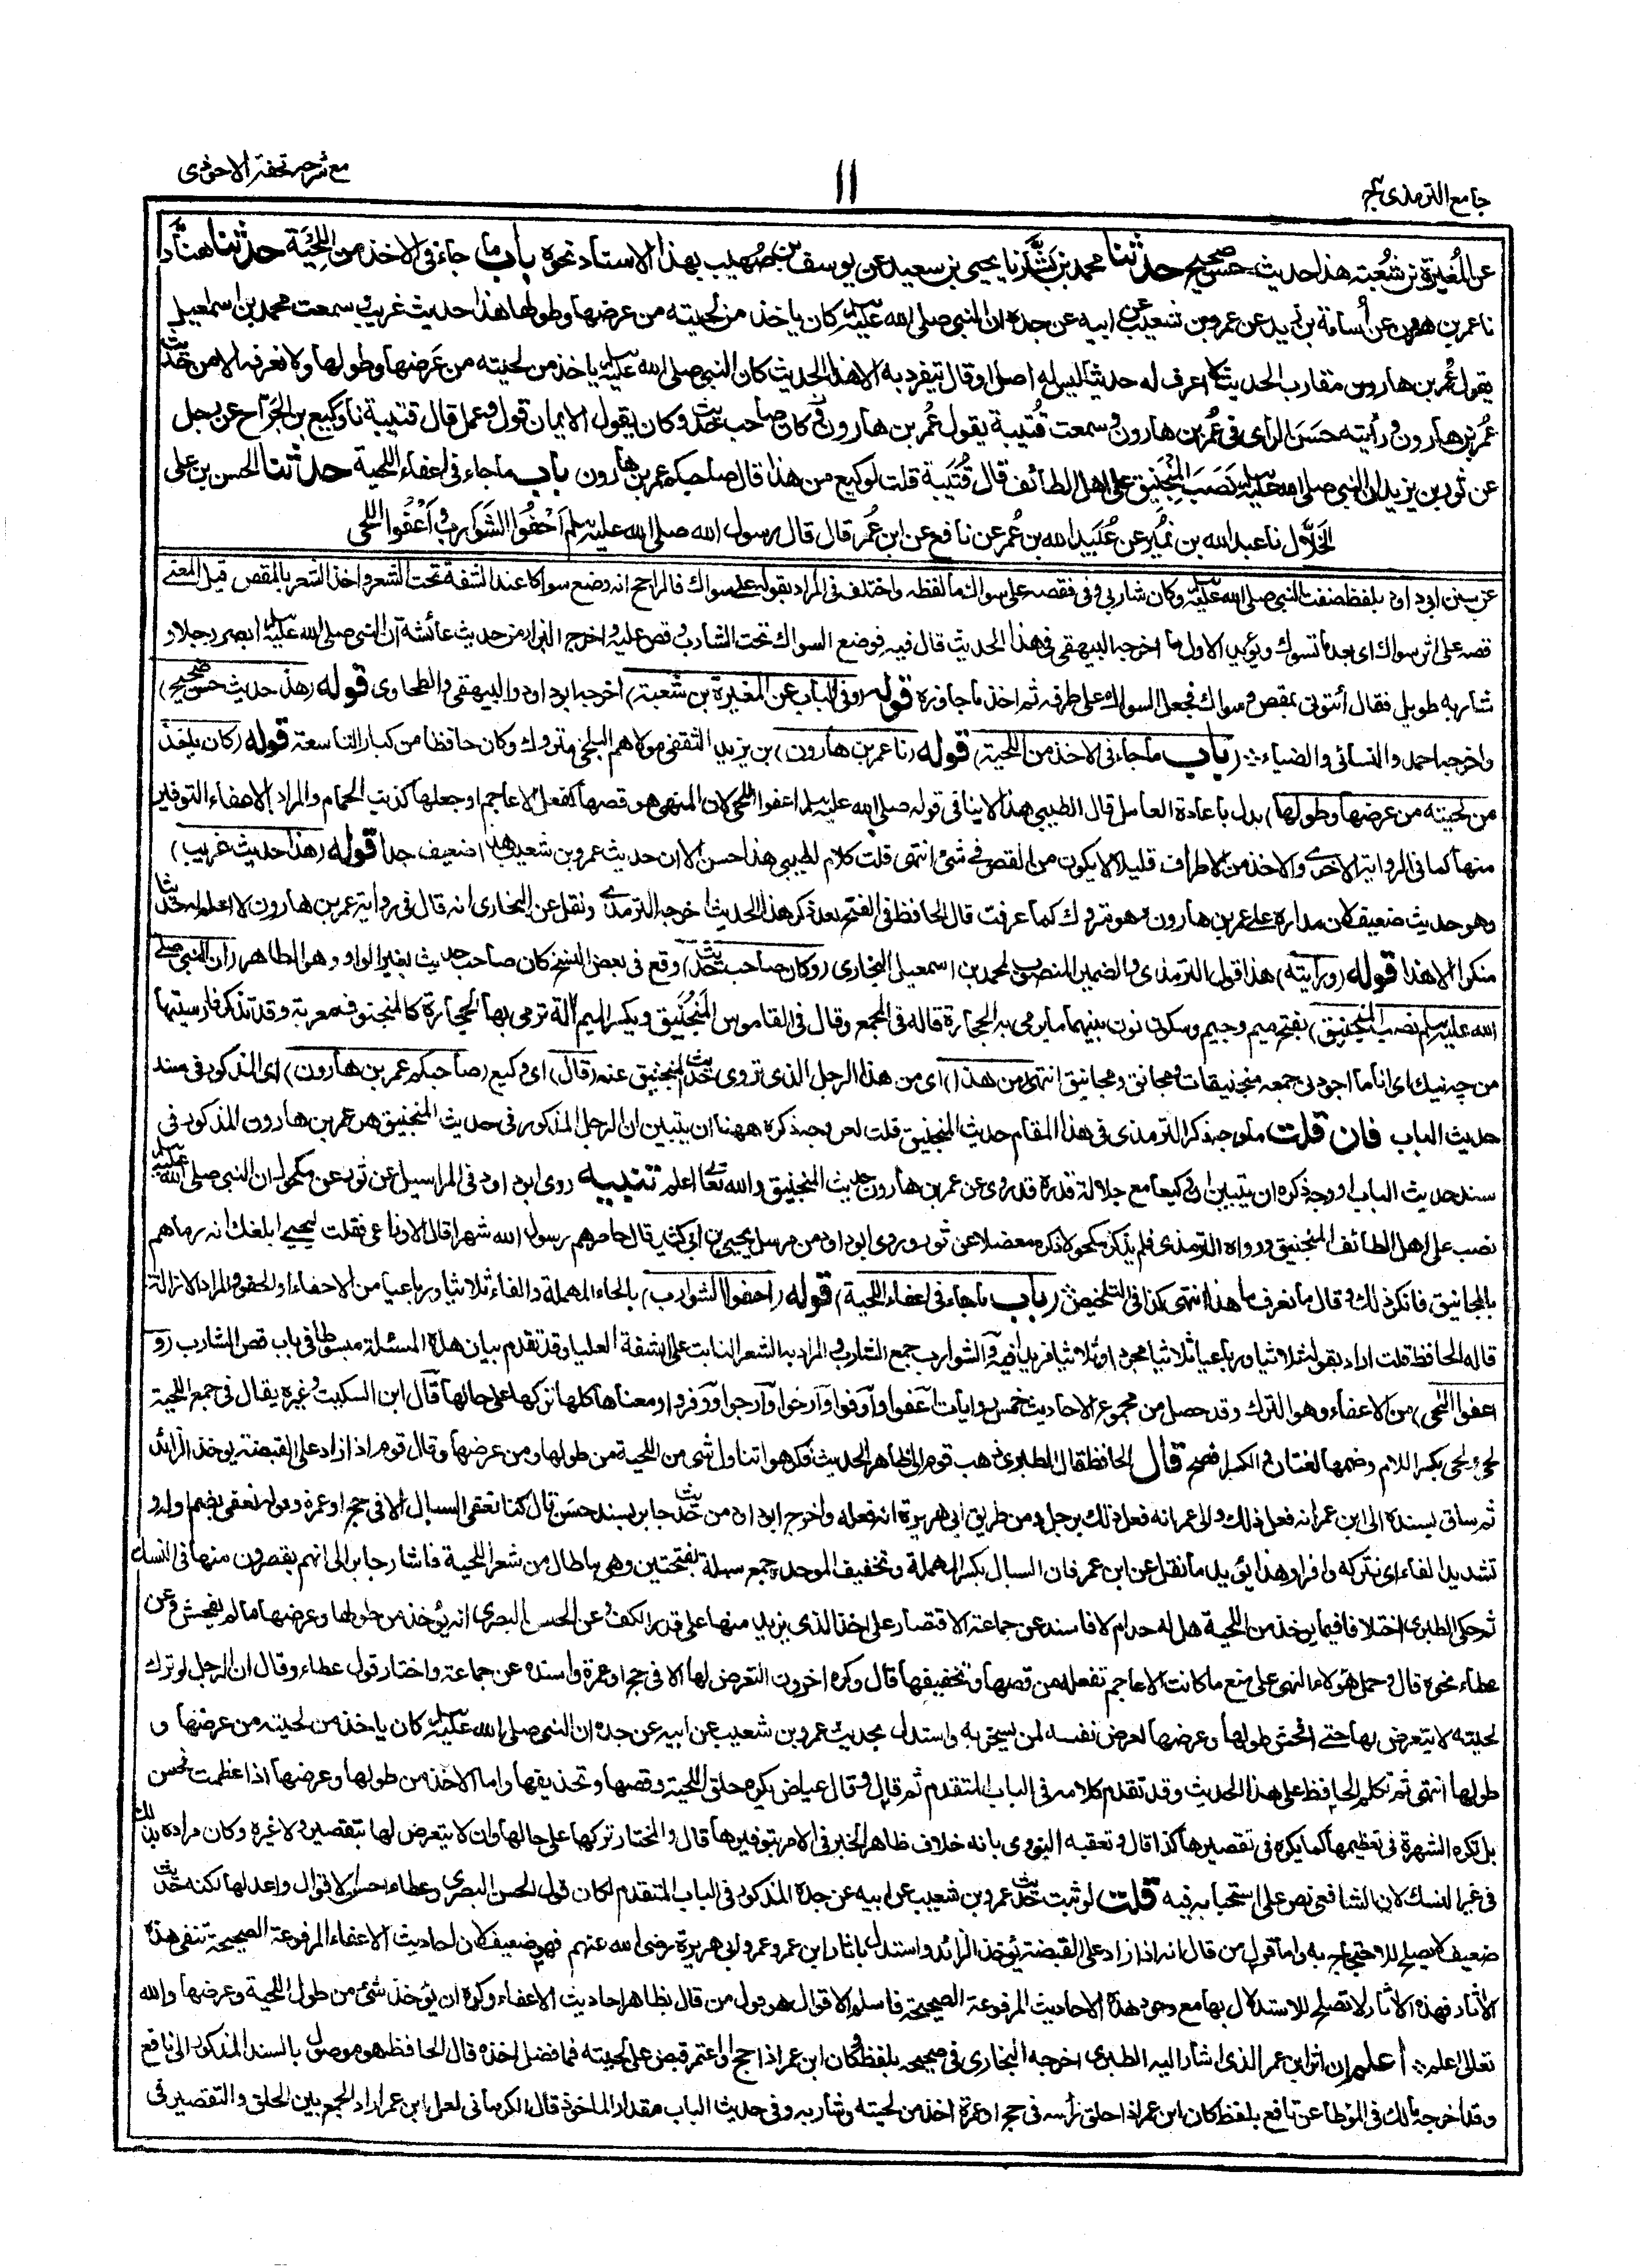 جامع الترمذى ج۴
۱۱
مع شرحه تحفة الاحوذى
عن المُغيرة بن شعبة هذا حديث حسن صحيح حدثنا محمد بن بَشّار نا يحيى بن سعيد عن يوسف بن صُهَيب بهذا الاسناد نحوه باب ما جاء فى الاخذ من اللِّحْيَة حدثنا هنّاد
نا عمر بن هٰرون عن أسامة بن زيد عن عمرو بن شعيب عن ابيه عن جده ان النبى صلى الله عليه وسلم كان ياخذ من لحيته من عرضها وطولها هذا حديث غريب وسمعت محمد بن اسمعيل
يقول عُمر بن هارون مقارب الحديث لا اعرف له حديثا ليس له اصل او قال تيفرد به الا هذا الحديث كان النبى صلى الله عليه وسلم ياخذ من لحيته من عَرضها وطولها ولا نعرفه الا من حديث
عُمر بن هارون و رأيته حَسَنَ الرأى فى عُمر بن هارون وسمعت قُتيبة يقول عُمر بن هارون كان صاحب حديث وكان يقول الايمان قول وعمل قال قتيبة نا وكيع بن الجَرّاح عن رجل
عن ثور بن يزيد ان النبى صلى الله عليه وسلم نَصَبَ المَنْجَنِيق على اهل الطائف قال قُتَيبَة قلت لوكيع من هذا قال صاحبكم عمر بن هارون باب ما جاء فى اعفاء اللحية حدثنا الحسن بن على
الخَلّال نا عبد الله بن نُمَير عن عُبَيد الله بن عُمر عن نافع عن ابن عُمر قال قال رسول الله صلى الله عليه وسلم أَحْفُوا الشَّوَارِبَ وأَعْفُوا اللحى
عن سنن ابى داود بلفظ ضفت النبى صلى الله عليه وسلم وكان شاربى وفى فقصه على سواك لفظه واختلف فى المراد بقوله على سواك فالراجح انه وضع سواكا عند الشفة تحت الشعر واخذ الشعر بالمقص قيل المعنى
قصه على اثر سواك اى بعد ما تسوك ويؤيد الاول ما اخرجه البيهقى فى هذا الحديث قال فيه فوضع السواك تحت الشارب وقص عليه واخرج البزار من حديث عائشة ان النبى صلى الله عليه وسلم ابصر رجلا و
شاربه طويل فقال أئتونى بمقص وسواك فجعل السواك على طرفه ثم اخذ ما جاوزه قوله (وفى الباب عن المغيرة بن شعبة) اخرجه ابو داود والبيهقى والطحاوى قوله (هذا حديث حسن صحيح)
واخرجه احمد والنسائى والضياء ∴ (باب ما جاء فى الاخذ من اللحية) قوله (نا عمر بن هارون) بن يزيد الثقفى مولاهم البلخى متروك وكان حافظا من كبار التاسعة قوله (كان ياخذ
من لحيته من عرضها وطولها) بدل باعادة العامل قال الطيبى هذا لا ينافى قوله صلى الله عليه وسلم اعفوا اللحى لان المنهى هو قصها كفعل الاعاجم او جعلها كذنب الحمام والمراد بالاعفاء التوفير
منها كما فى الرواية الاخرى والاخذ من الاطراف قليلا لا يكون من القص فى شئ انتهى قلت كلام الطيبى هذا حسن الا ان حديث عمرو بن شعيب هذا ضعيف جدا قوله (هذا حديث غريب)
وهو حديث ضعيف لان مداره على عمر بن هارون وهو متروك كما عرفت قال الحافظ فى الفتح بعد ذكر هذا الحديث اخرجه الترمذى ونقل عن البخارى انه قال فى رواية عمر بن هارون لا اعلم له حديثا
منكرا الا هذا قوله (ورأيته) هذا قول الترمذى والضمير المنصوب لمحمد بن اسمعيل البخارى (وكان صاحب حديث) وقع فى بعض النسخ كان صاحب حديث بغير الواو وهو الظاهر (ان النبى صلى
الله عليه وسلم نصب المنجنيق) بفتح ميم وجيم وسكون نون بينهما ما يرمى به الحجارة قاله فى المجمع وقال فى القاموس المَنْجَنِيق ويكسر الميم آلة ترمى بها الحجارة كالمنجنوق معربة وقد تذكر فارسيتها
من چه نيك اى انا ما اجودنى جمعه منجنيقات ومجانق ومجانيق انتهى (من هذا) اى من هذا الرجل الذى تروى حديث المنجنيق عنه (قال) اى وكيع (صاحبكم عمر بن هارون) اى المذكور فى سند
حديث الباب فان قلت ما وجه ذكر الترمذى فى هذا المقام حديث المنجنيق قلت لعل وجه ذكره ههنا ان يتبين ان الرجل المذكور فى حديث المنجنيق هو عمر بن هارون المذكور فى
سند حديث الباب او وجه ذكره ان يتبين ان وكيعا مع جلالة قدره قد روى عن عمر بن هارون حديث المنجنيق والله تعالى اعلم تنبيه روى ابو داود فى المراسيل عن ثور عن مكحول ان النبى صلى الله عليه وسلم
نصب على اهل الطائف المنجنيق ورواه الترمذى فلم يذكر مكحولا ذكره معضلا عن ثور وروى ابو داود من مرسل يحيى بن ابى كثير قال حاصرهم رسول الله شهرا قال الاوزاعى فقلت ليحيى ابلغك انه رماهم
بالمجانيق فانكر ذلك وقال ما نعرف ما هذا انتهى كذا فى التلخيص ∴ (باب ما جاء فى اعفاء اللحية) قوله (احفوا الشوارب) بالحاء المهملة والفاء ثلاثيا ورباعيا من الاحفاء او الحفو والمراد الازالة
قاله الحافظ قلت اراد بقوله ثلاثيا ورباعيا ثلاثيا مجردا وثلاثيا مزيدا فيه والشوارب جمع الشارب والمراد به الشعر النابت على الشفة العليا وقد تقدم بيان هذه المسئلة مبسوطا فى باب قص الشارب (و
اعفوا اللحى) من الاعفاء وهو الترك وقد حصل من مجموع الاحاديث خمس روايات أعفوا وأوفوا وأرخوا وأرجوا ووفروا ومعناها كلها تركها على حالها قال ابن السكيت وغيره يقال فى جمع اللحية
لحى ولحى بكسر اللام وضمها لغتان والكسر افصح قال الحافظ قال الطبرى ذهب قوم الى ظاهر الحديث فكرهوا تناول شئ من اللحية من طولها ومن عرضها وقال قوم اذا زاد على القبضة يوخذ الزائد
ثم ساق بسنده الى ابن عمر انه فعل ذلك والى عمر انه فعل ذلك برجل ومن طريق ابى هريرة انه فعله واخرج ابو داود من حديث جابر بسند حسن قال كنا نعفى السبال الا فى حج او عمرة وقوله نعفى بضم اوله و
تشديد الفاء اى نتركه وافرا وهذا يؤيد ما نقل عن ابن عمر فان السبال بكسر المهملة وتخفيف الموحدة جمع سبلة بفتحتين وهى ما طال من شعر اللحية فاشار جابر الى انهم يقصرون منها فى النسك
ثم حكى الطبرى اختلافا فيما يوخذ من اللحية هل له حد ام لا فاسند عن جماعة الاقتصار على اخذ الذى يزيد منها على قدر الكف وعن الحسن البصرى انه يؤخذ من طولها وعرضها ما لم يفحش وعن
عطاء نحوه قال وحمل هؤلاء النهى على منع ما كانت الاعاجم تفعله من قصها وتخفيفها قال وكره اخرون التعرض لها الا فى حج او عمرة واسنده عن جماعة واختار قول عطاء وقال ان الرجل لو ترك
لحيته لا يتعرض بها حتى افحش طولها وعرضها لعرض نفسه لمن يسخر به واستدل بحديث عمرو بن شعيب عن ابيه عن جده ان النبى صلى الله عليه وسلم كان ياخذ من لحيته من عرضها و
طولها انتهى ثم تكلم الحافظ على هذا الحديث وقد تقدم كلامه فى الباب المتقدم ثم قال وقال عياض يكره حلق اللحية وقصها وتحذيفها واما الاخذ من طولها وعرضها اذا عظمت فحسن
بل تكره الشهرة فى تعظيمها كما يكره فى تقصيرها كذا قال وتعقبه النووى بانه خلاف ظاهر الخبر فى الامر بتوفيرها قال والمختار تركها على حالها وان لا يتعرض لها بتقصير ولا غيره وكان مراده بذلك
فى غير النسك لان الشافعى نص على استحبابه فيه قلت لو ثبت حديث عمرو بن شعيب عن ابيه عن جده المذكور فى الباب المتقدم لكان قول الحسن البصرى وعطاء احسن الاقوال واعدلها لكنه حديث
ضعيف لا يصلح للاحتجاج به واما قول من قال انه اذا زاد على القبضة يؤخذ الزائد واستدل باثار ابن عمر وعمر وابى هريرة رضى الله عنهم فهو ضعيف لان احاديث الاعفاء المرفوعة الصحيحة تنفى هذه
الاثار فهذه الاثار لا تصلح للاستدلال بها مع وجود هذه الاحاديث المرفوعة الصحيحة فاسلم الاقوال هو قول من قال بظاهر احاديث الاعفاء وكره ان يؤخذ شئ من طول اللحية وعرضها والله
تعالى اعلم ∴ اعلم ان اثر ابن عمر الذى اشار اليه الطبرى اخرجه البخارى فى صحيحه بلفظ وكان ابن عمر اذا حج او اعتمر قبض على لحيته فما فضل اخذه قال الحافظ هو موصول بالسند المذكور الى نافع
وقد اخرجه مالك فى الموطا عن نافع بلفظ كان ابن عمر اذا حلق رأسه فى حج او عمرة اخذ من لحيته وشاربه وفى حديث الباب مقدار الماخوذ قال الكرمانى لعل ابن عمر اراد الجمع بين الحلق والتقصير فى